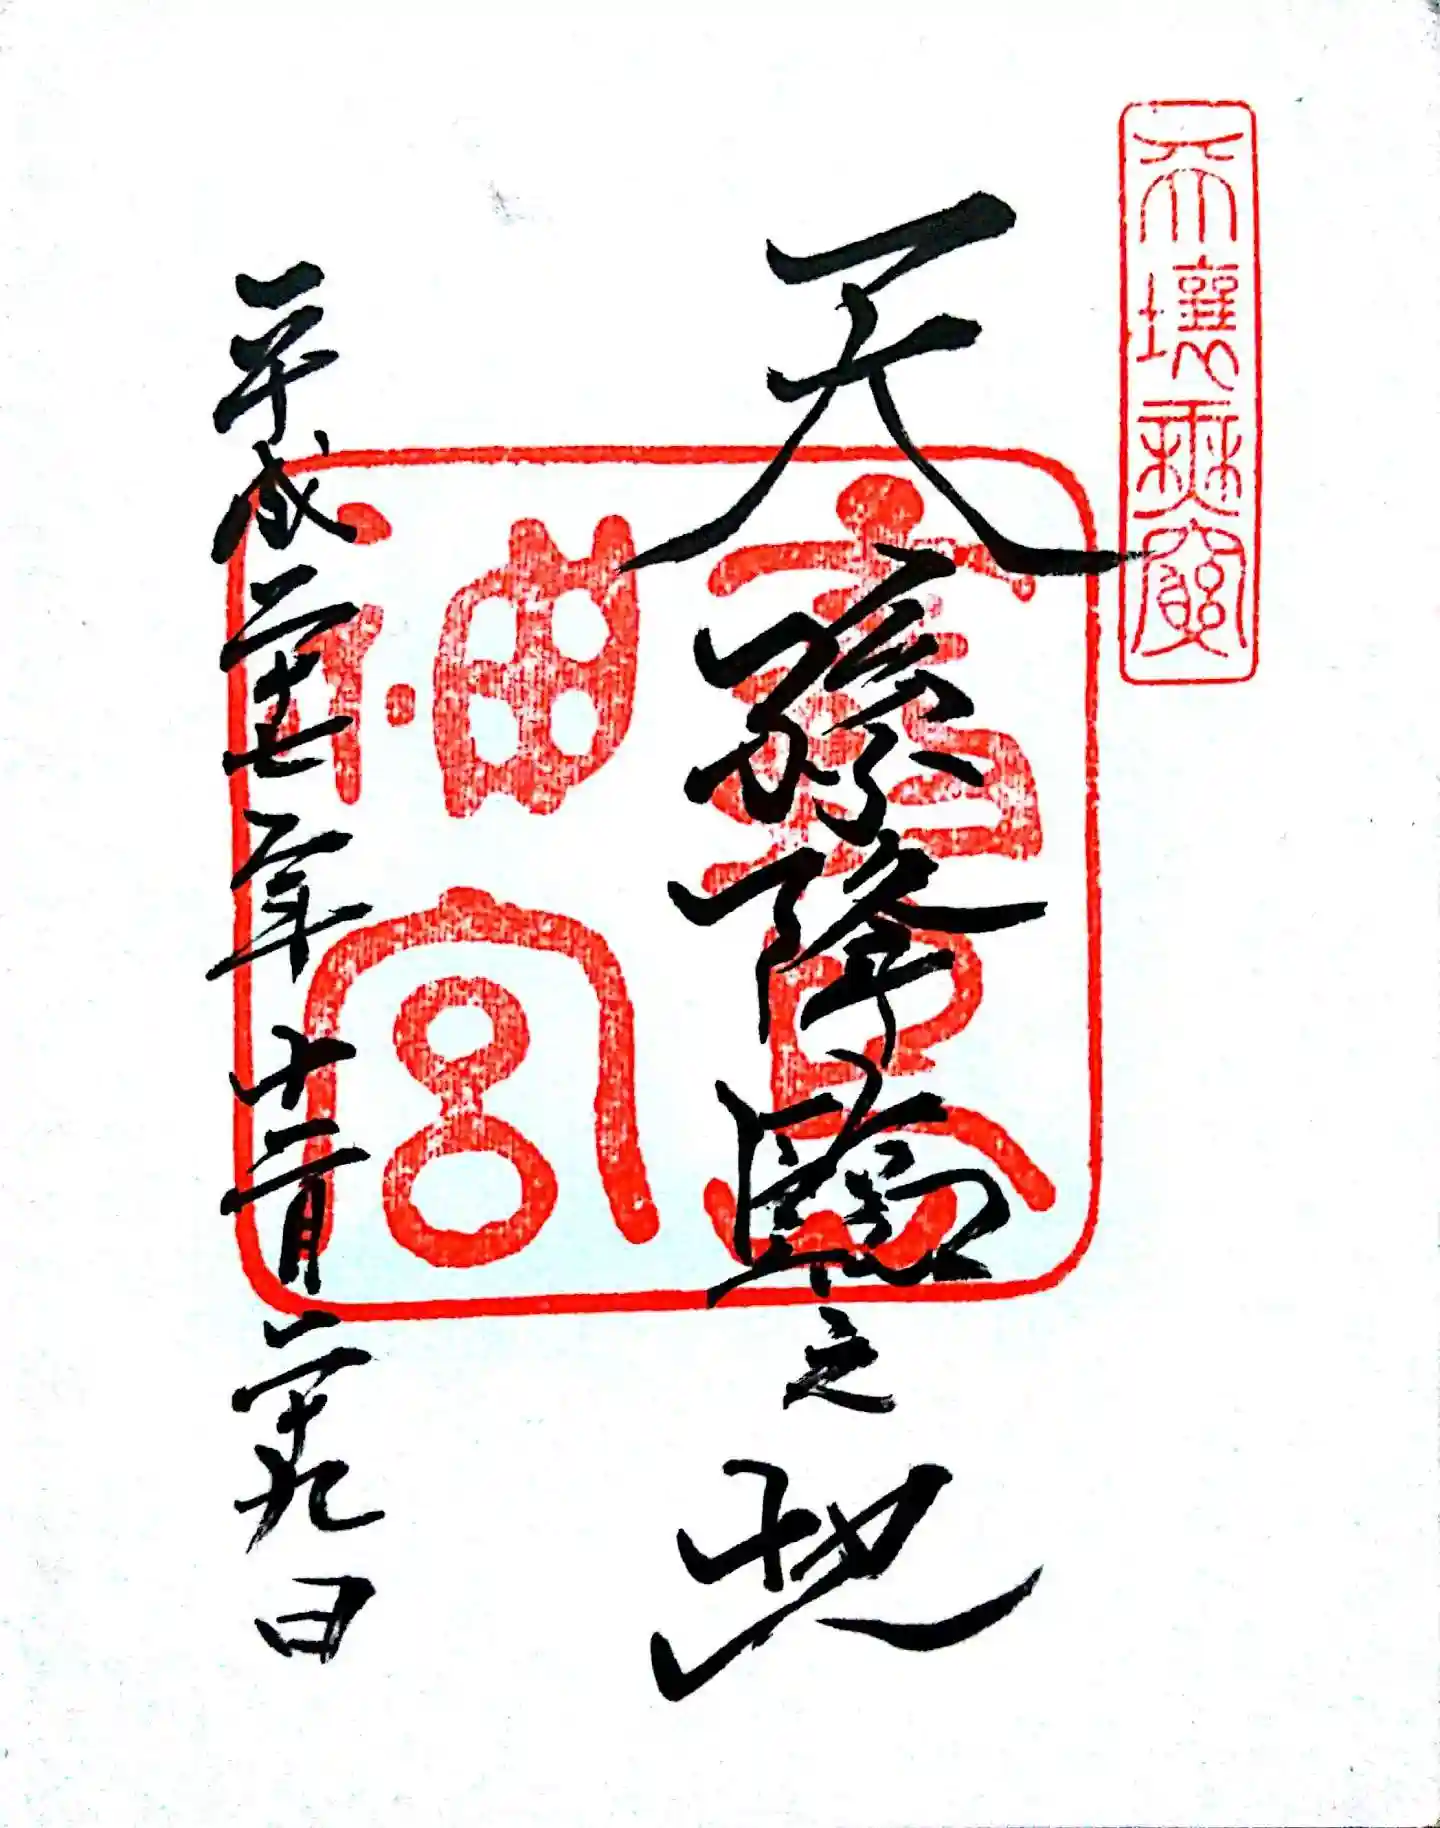 天壤無窮
天孫降臨之地
霧島神宮
平成二十七年十二月二十九日